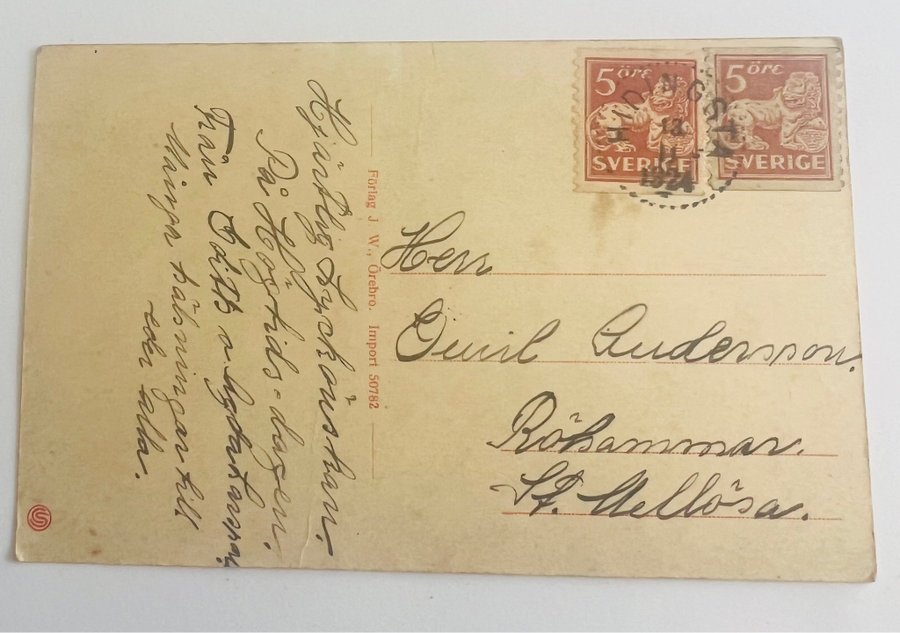 5 öre
SVERIGE
5 öre
SVERIGE
HIDINGSTA
13
1924
Herr
Emil Andersson.
Röhammar.
St. Mellösa.
Förlag J. W., Örebro. Import 50782
Hjärtlig Lyckönskan.
På Högtids=dagen.
Från
Många hälsningar till
eder alla.